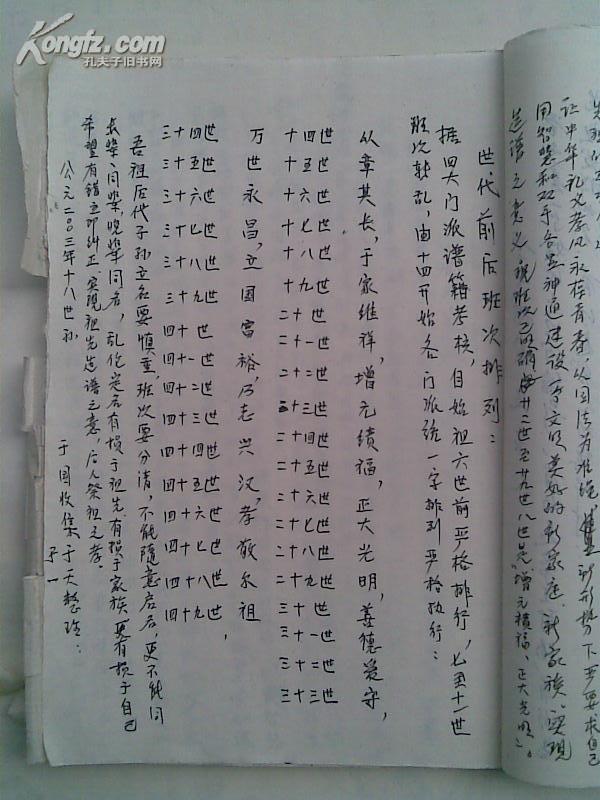 Kongfz.com
孔夫子旧书网
让中华礼义孝风永存青春,从国法为准绳
用智慧和双手各显神通建设 文明美好的新家庭、新家族。实现
造谱之意义
世代前后班次排列:
据四大门派谱籍考核,自始祖六世前严格排行,七至十一世
班次耗乱,由十四开始各门派统一字排列严格执行:
从章其长,于家维祥,增元绩福,正大光明,善德爱守,
十四世 十五世 十六世 十七世 十八世 十九世 二十世 二十一世 二十二世 二十三世 二十四世 二十五世 二十六世 二十七世 二十八世 二十九世 三十世 三十一世 三十二世 三十三世
万世永昌,立国富裕,乃志兴汉,孝敬尔祖,
三十四世 三十五世 三十六世 三十七世 三十八世 三十九世 四十世 四十一世 四十二世 四十三世 四十四世 四十五世 四十六世 四十七世 四十八世 四十九世
吾祖后代子孙立名要慎重,班次要分清,不能随意启名,更不能同
长辈同辈,晚辈同名,乱伦定名有损于祖先有损于家族更有损于自己
希望有错立即纠正,实现祖先造谱之意,后人祭祖之孝。
公元二00三年十八世孙 于国收集 于天整理: